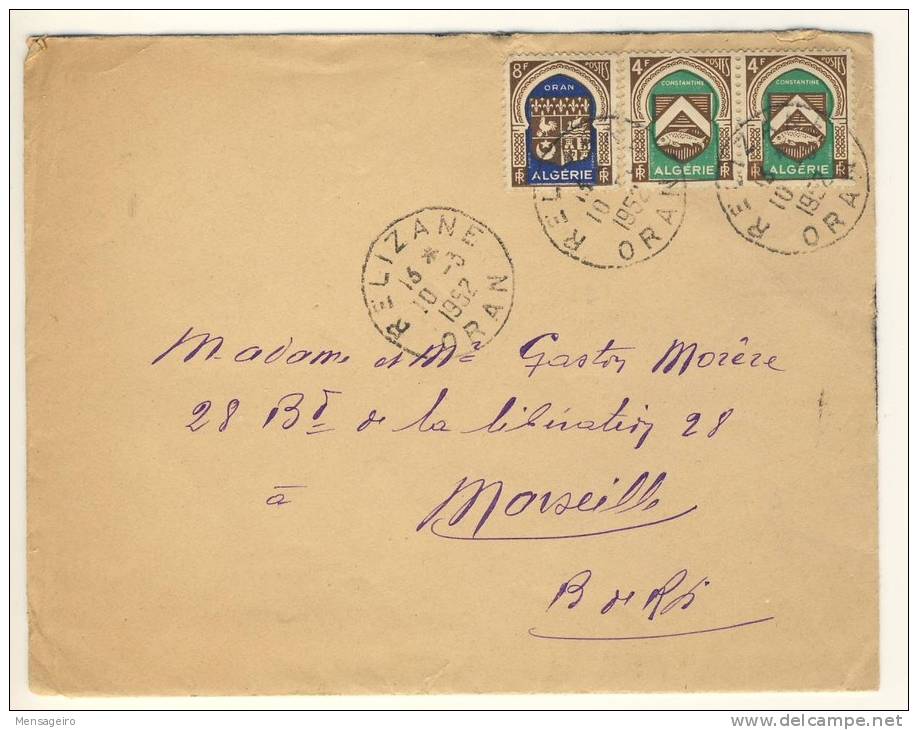 8F POSTES
ORAN
RF ALGÉRIE RF
4F POSTES
CONSTANTINE
RF ALGÉRIE RF
4F POSTES
CONSTANTINE
RF ALGÉRIE RF
RELIZANE
* 13
10
1952
ORAN
Madame et Mr Gaston Morère
28 Bd de la libération 28
à Marseille
B de Rh
Mensageiro
www.delcampe.net